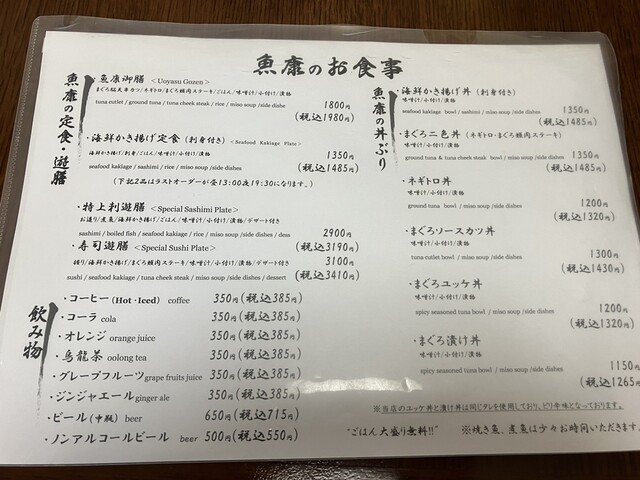 魚康のお食事
魚康の定食・遊膳
・魚康御膳 <Uoyasu Gozen>
まぐろ/ネギトロ/まぐろ頬肉ステーキ/ごはん/味噌汁/小付け/漬物
tuna cutlet / ground tuna / tuna cheek steak / rice / miso soup /side dishes
1800円
(税込1980円)
・海鮮かき揚げ定食 (刺身付き) <Seafood Kakiage Plate>
海鮮かき揚げ/刺身/ごはん/味噌汁/小付け/漬物
seafood kakiage / sashimi / rice / miso soup /side dishes
1350円
(税込1485円)
(下記2品はラストオーダーが昼13:00夜19:30になります。)
・特上利遊膳 <Special Sashimi Plate>
お造り/煮魚/海鮮かき揚げ/ごはん/味噌汁/小付け/漬物/デザート付き
sashimi / boiled fish / seafood kakiage / rice / miso soup /side dishes / dess
2900円
(税込3190円)
・寿司遊膳 <Special Sushi Plate>
握り/海鮮かき揚げ/まぐろ頬肉ステーキ/味噌汁/小付け/漬物/デザート付き
3100円
sushi / seafood kakiage / tuna cheek steak / miso soup /side dishes / dessert
(税込3410円)
飲み物
・コーヒー (Hot・Iced) coffee 350円(税込385円)
・コーラ cola 350円(税込385円)
・オレンジ orange juice 350円(税込385円)
・烏龍茶 oolong tea 350円(税込385円)
・グレープフルーツ grape fruits juice 350円(税込385円)
・ジンジャエール ginger ale 350円(税込385円)
・ビール (中瓶) beer 650円(税込715円)
・ノンアルコールビール beer 500円(税込550円)
魚康の丼ぶり
・海鮮かき揚げ丼 (刺身付き)
味噌汁/小付け/漬物
seafood kakiage bowl / sashimi / miso soup /side dishes
1350円
(税込1485円)
・まぐろ二色丼 (ネギトロ・まぐろ頬肉ステーキ)
味噌汁/小付け/漬物
ground tuna & tuna cheek steak bowl / miso soup /side dishes
1350円
(税込1485円)
・ネギトロ丼
味噌汁/小付け/漬物
ground tuna bowl / miso soup /side dishes
1200円
(税込1320円)
・まぐろソースカツ丼
味噌汁/小付け/漬物
tuna cutlet bowl / miso soup /side dishes
1300円
(税込1430円)
・まぐろユッケ丼
味噌汁/小付け/漬物
spicy seasoned tuna bowl / miso soup /side dishes
1200円
(税込1320円)
・まぐろ漬け丼
味噌汁/小付け/漬物
spicy seasoned tuna bowl / miso soup /side dishes
1150円
(税込1265
※当店のユッケ丼と漬け丼は同じダレを使用しており、ピリ辛味となっております。
"ごはん大盛り無料!!"
※焼き魚、煮魚は少々お時間いただきます。